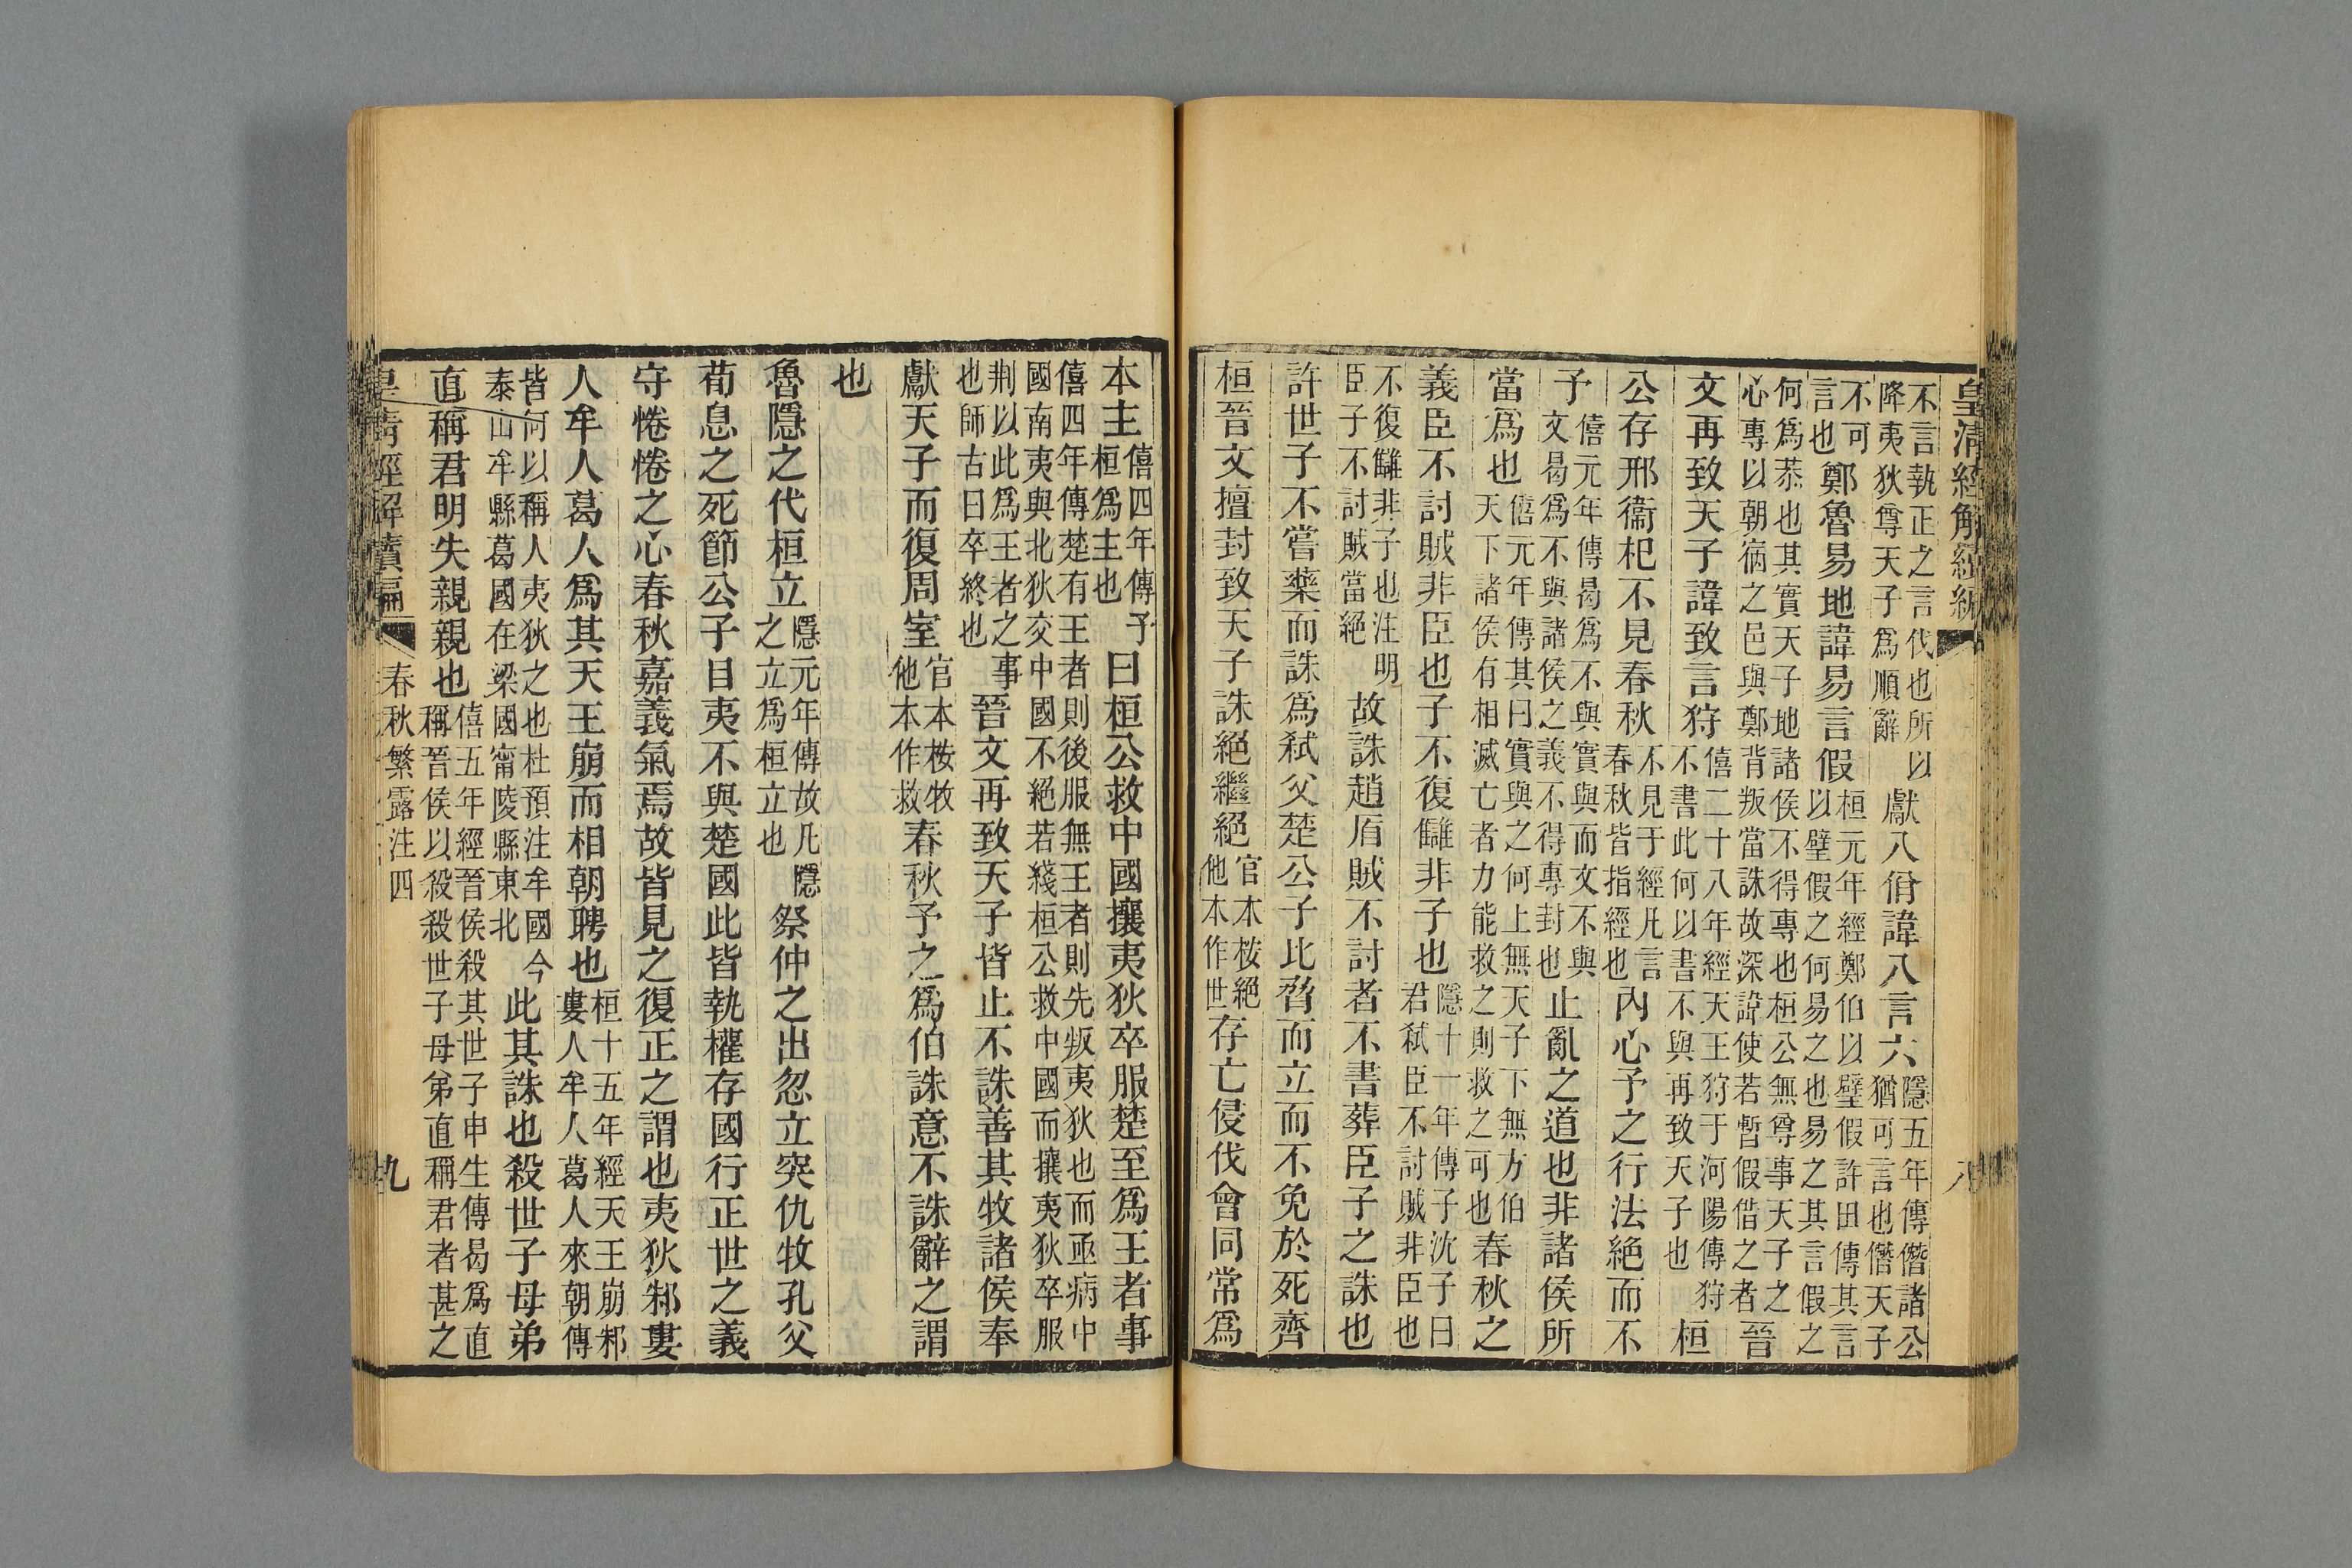 皇清經解續編 八
不言執正之言伐也所以降夷狄尊天子爲順辭獻八佾諱八言六隱五年傳僭諸公猶可言也僭天子
不可言也鄭魯易地諱易言假桓元年經鄭伯以璧假許田傳其言以璧假之何易之也易之其言假之
何爲恭也其實天子地諸侯不得專也桓公無尊事天子之心專以朝宿之邑與鄭背叛當誅故深諱使若暫假借之者晉
文再致天子諱致言狩僖二十八年經天王狩于河陽傳狩不書此何以書不與再致天子也桓
公存邢衞杞不見春秋不見于經凡言春秋皆指經也內心予之行法絕而不
予僖元年傳曷爲不與實與而文不與文曷爲不與諸侯之義不得專封也止亂之道也非諸侯所
當爲也僖元年傳其曰實與之何上無天子下無方伯天下諸侯有相滅亡者力能救之則救之可也春秋之
義臣不討賊非臣也子不復讎非子也隱十一年傳子沈子曰君弒臣不討賊非臣也
不復讎非子也注明臣子不討賊當絕故誅趙盾賊不討者不書葬臣子之誅也
許世子不嘗藥而誅爲弒父楚公子比脅而立而不免於死齊
桓晉文擅封致天子誅絕繼絕官本桉絕他本作世存亡侵伐會同常爲
本主僖四年傳予桓爲主也曰桓公救中國攘夷狄卒服楚至爲王者事
僖四年傳楚有王者則後服無王者則先叛夷狄也而亟病中國南夷與北狄交中國不絕若綫桓公救中國而攘夷狄卒服
荆以此爲王者之事也師古曰卒終也晉文再致天子皆止不誅善其牧諸侯奉
獻天子而復周室官本桉牧他本作救春秋予之爲伯誅意不誅辭之謂
也
魯隱之代桓立隱元年傳故凡隱之立爲桓立也祭仲之出忽立突仇牧孔父
荀息之死節公子目夷不與楚國此皆執權存國行正世之義
守惓惓之心春秋嘉義氣焉故皆見之復正之謂也夷狄邾婁
人牟人葛人爲其天王崩而相朝聘也桓十五年經天王崩邾婁人牟人葛人來朝傳
皆何以稱人夷狄之也杜預注牟國今泰山牟縣葛國在梁國甯陵縣東北此其誅也殺世子母弟
直稱君明失親親也僖五年經晉侯殺其世子申生傳曷爲直稱晉侯以殺殺世子母弟直稱君者甚之
皇清經解續編 春秋繁露注四 九